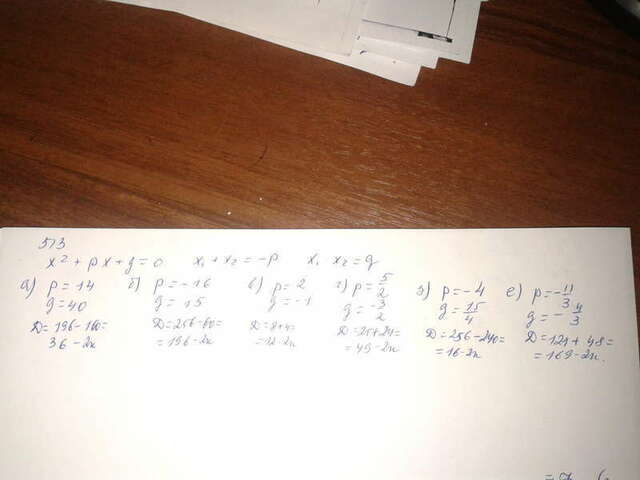 513
x² + px + q = 0 x₁ + x₂ = -p x₁ x₂ = q
а) p = 14
q = 40
D = 196 - 160 =
36 - 2к
б) p = -16
q = 15
D = 256 - 60 =
= 196 - 2к
в) p = 2
q = -1
D = 8 + 4 =
= 12 - 2к
г) p = 5/2
q = -3/2
D = 25 + 24 =
= 49 - 2к
д) p = -4
q = 15/4
D = 256 - 240 =
= 16 - 2к
е) p = -11/3
q = -4/3
D = 121 + 48 =
= 169 - 2к.